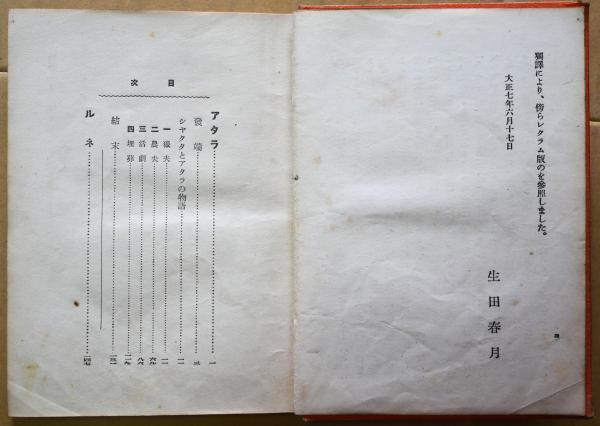 獨譯により、傍らレクラム版のを參照しました。
大正七年六月十七日
生田春月
四
目次
アタラ 一
發端 三
シヤクタとアタラの物語 一一
一 獵夫 一一
二 農夫
三 活劇
四 埋葬
結末
ルネ